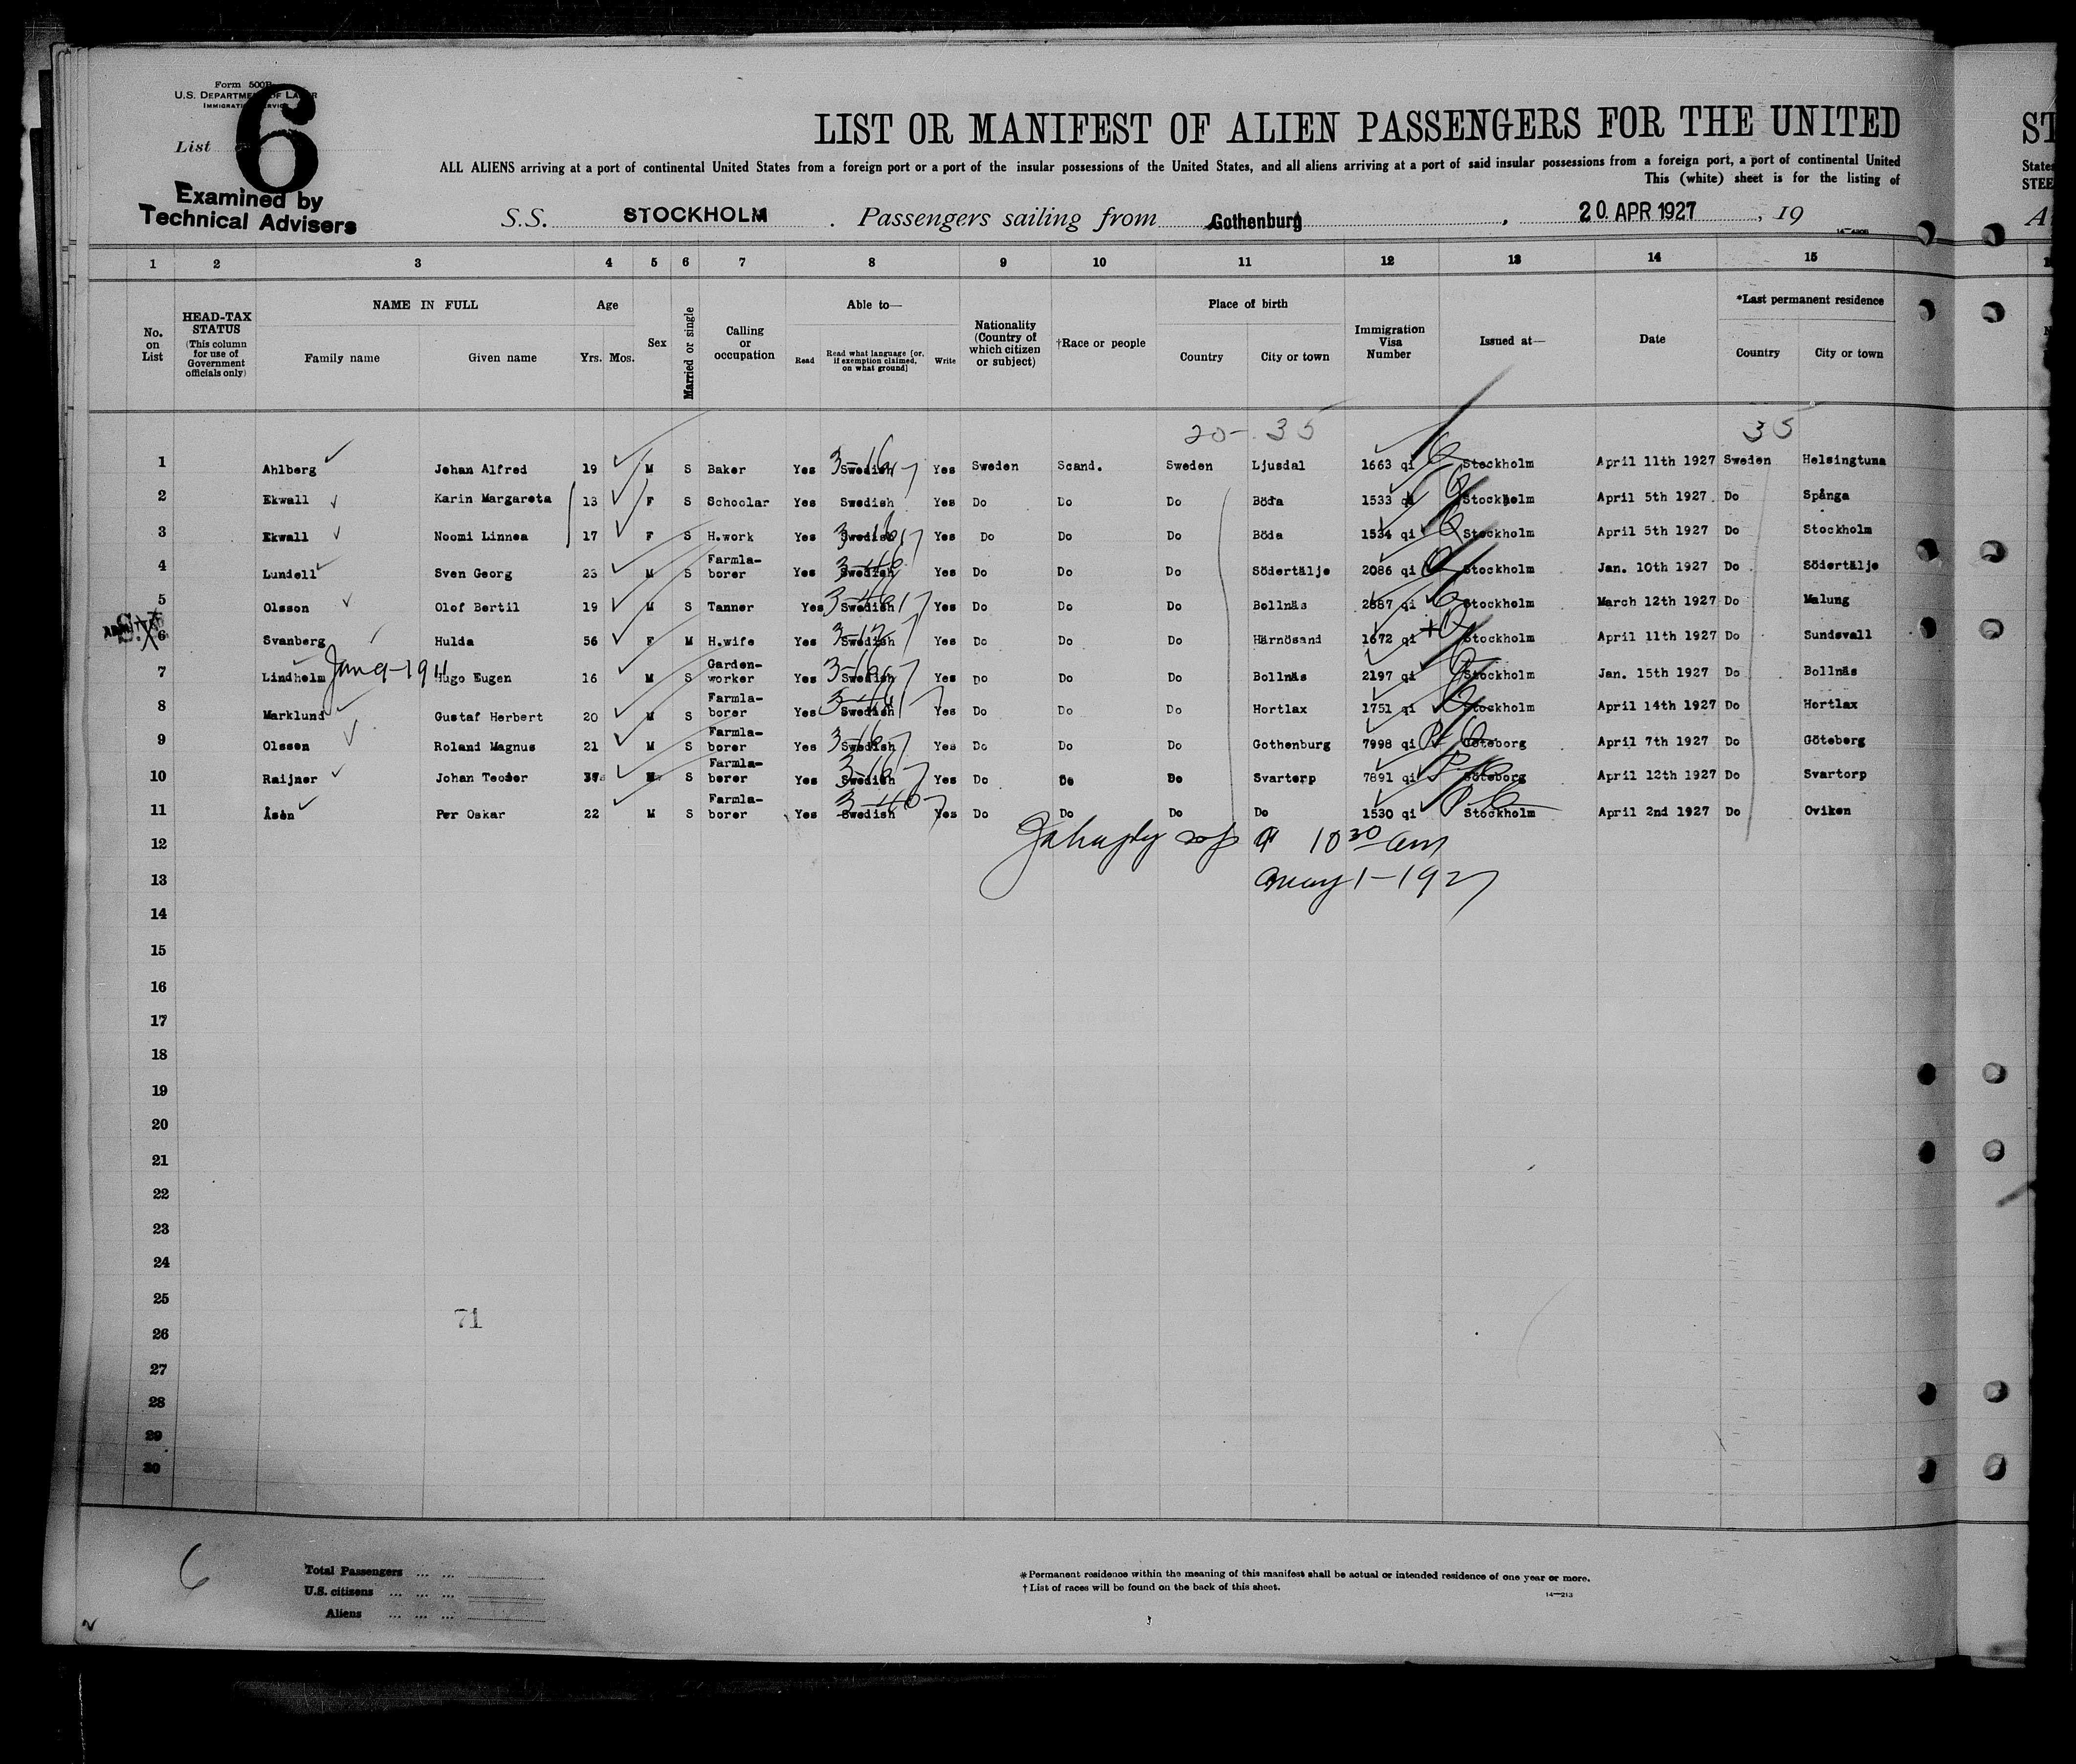 Form 500B
U.S. DEPARTMENT OF LABOR
IMMIGRATION SERVICE
List 6
Examined by
Technical Advisers
LIST OR MANIFEST OF ALIEN PASSENGERS FOR THE UNITED
ALL ALIENS arriving at a port of continental United States from a foreign port or a port of the insular possessions of the United States, and all aliens arriving at a port of said insular possessions from a foreign port, a port of continental United
This (white) sheet is for the listing of
S.S. STOCKHOLM . Passengers sailing from Gothenburg , 20. APR 1927 , 19
ST
States
STEE
A
1 2 3 4 5 6 7 8 9 10 11 12 13 14 15
No. on List
HEAD-TAX STATUS (This column for use of Government officials only)
NAME IN FULL
Family name Given name
Age
Yrs. Mos.
Sex
Married or single
Calling or occupation
Able to—
Read Read what language [or, if exemption claimed, on what ground] Write
Nationality (Country of which citizen or subject)
†Race or people
Place of birth
Country City or town
Immigration Visa Number
Issued at—
Date
*Last permanent residence
Country City or town
20-35 35
1 Ahlberg Johan Alfred 19 M S Baker Yes Swedish Yes Sweden Scand. Sweden Ljusdal 1663 qi Stockholm April 11th 1927 Sweden Helsingtuna
2 Ekwall Karin Margareta 13 F S Schoolar Yes Swedish Yes Do Do Do Böda 1533 qi Stockholm April 5th 1927 Do Spånga
3 Ekwall Noomi Linnea 17 F S H.work Yes Swedish Yes Do Do Do Böda 1534 qi Stockholm April 5th 1927 Do Stockholm
4 Lundell Sven Georg 23 M S Farmla-borer Yes Swedish Yes Do Do Do Södertälje 2086 qi Stockholm Jan. 10th 1927 Do Södertälje
5 Olsson Olof Bertil 19 M S Tanner Yes Swedish Yes Do Do Do Bollnäs 2887 qi Stockholm March 12th 1927 Do Malung
6 Svanberg Hulda 56 F M H.wife Yes Swedish Yes Do Do Do Härnösand 1672 qi Stockholm April 11th 1927 Do Sundsvall
7 Lindholm Jan 9-1911 Hugo Eugen 16 M S Garden-worker Yes Swedish Yes Do Do Do Bollnäs 2197 qi Stockholm Jan. 15th 1927 Do Bollnäs
8 Marklund Gustaf Herbert 20 M S Farmla-borer Yes Swedish Yes Do Do Do Hortlax 1751 qi Stockholm April 14th 1927 Do Hortlax
9 Olsson Roland Magnus 21 M S Farmla-borer Yes Swedish Yes Do Do Do Gothenburg 7998 qi Göteborg April 7th 1927 Do Göteberg
10 Raijner Johan Teodor M S Farmla-borer Yes Swedish Yes Do Do Do Svartorp 7891 qi Göteborg April 12th 1927 Do Svartorp
11 Åsèn Per Oskar 22 M S Farmla-borer Yes Swedish Yes Do Do Do Do 1530 qi Stockholm April 2nd 1927 Do Oviken
12 10 30 am
13 May 1-1927
14
15
16
17
18
19
20
21
22
23
24
25
71
26
27
28
29
30
6
Total Passengers ... ...
U.S. citizens ... ... ...
Aliens ... ... ...
*Permanent residence within the meaning of this manifest shall be actual or intended residence of one year or more.
†List of races will be found on the back of this sheet.
14—213